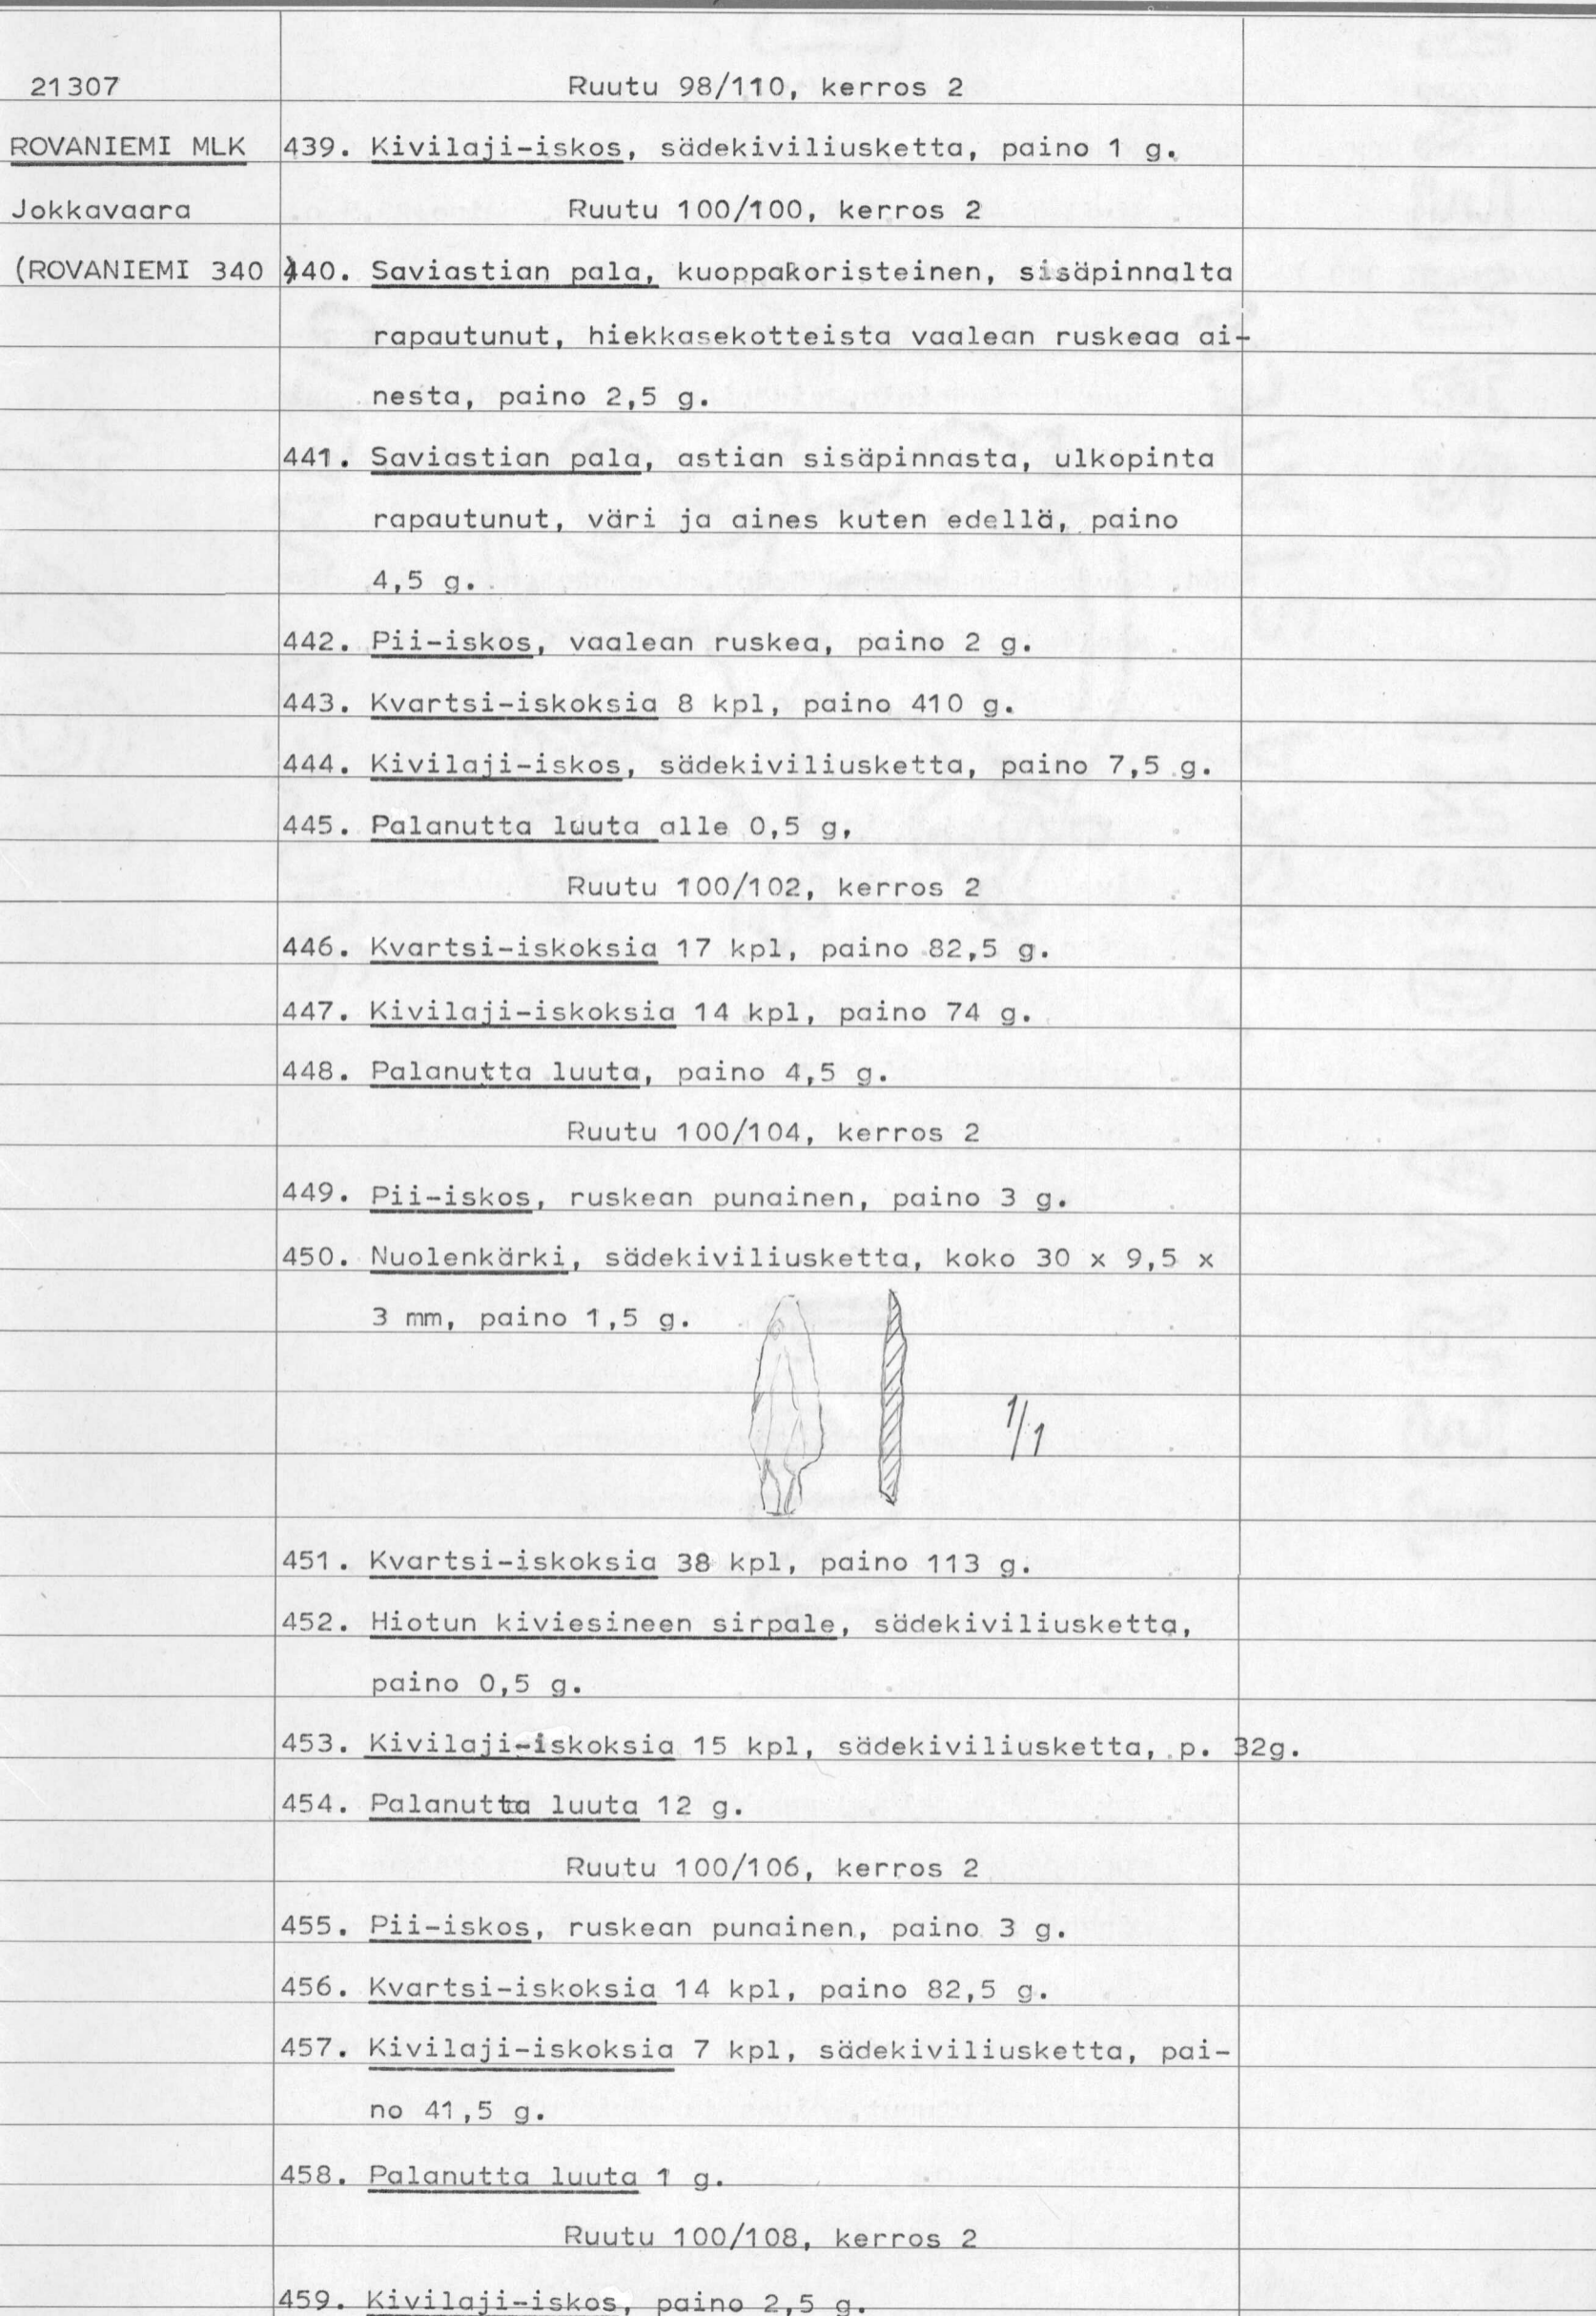 21307 Ruutu 98/110, kerros 2
ROVANIEMI MLK 439. Kivilaji-iskos, sädekiviliusketta, paino 1 g.
Jokkavaara Ruutu 100/100, kerros 2
(ROVANIEMI 340 ) 440. Saviastian pala, kuoppakoristeinen, sisäpinnalta
rapautunut, hiekkasekotteista vaalean ruskeaa ai-
nesta, paino 2,5 g.
441. Saviastian pala, astian sisäpinnasta, ulkopinta
rapautunut, väri ja aines kuten edellä, paino
4,5 g.
442. Pii-iskos, vaalean ruskea, paino 2 g.
443. Kvartsi-iskoksia 8 kpl, paino 410 g.
444. Kivilaji-iskos, sädekiviliusketta, paino 7,5 g.
445. Palanutta luuta alle 0,5 g.
Ruutu 100/102, kerros 2
446. Kvartsi-iskoksia 17 kpl, paino 82,5 g.
447. Kivilaji-iskoksia 14 kpl, paino 74 g.
448. Palanutta luuta, paino 4,5 g.
Ruutu 100/104, kerros 2
449. Pii-iskos, ruskean punainen, paino 3 g.
450. Nuolenkärki, sädekiviliusketta, koko 30 x 9,5 x
3 mm, paino 1,5 g.
1/1
451. Kvartsi-iskoksia 38 kpl, paino 113 g.
452. Hiotun kiviesineen sirpale, sädekiviliusketta,
paino 0,5 g.
453. Kivilaji-iskoksia 15 kpl, sädekiviliusketta, p. 32g.
454. Palanutta luuta 12 g.
Ruutu 100/106, kerros 2
455. Pii-iskos, ruskean punainen, paino 3 g.
456. Kvartsi-iskoksia 14 kpl, paino 82,5 g.
457. Kivilaji-iskoksia 7 kpl, sädekiviliusketta, pai-
no 41,5 g.
458. Palanutta luuta 1 g.
Ruutu 100/108, kerros 2
459. Kivilaji-iskos, paino 2,5 g.